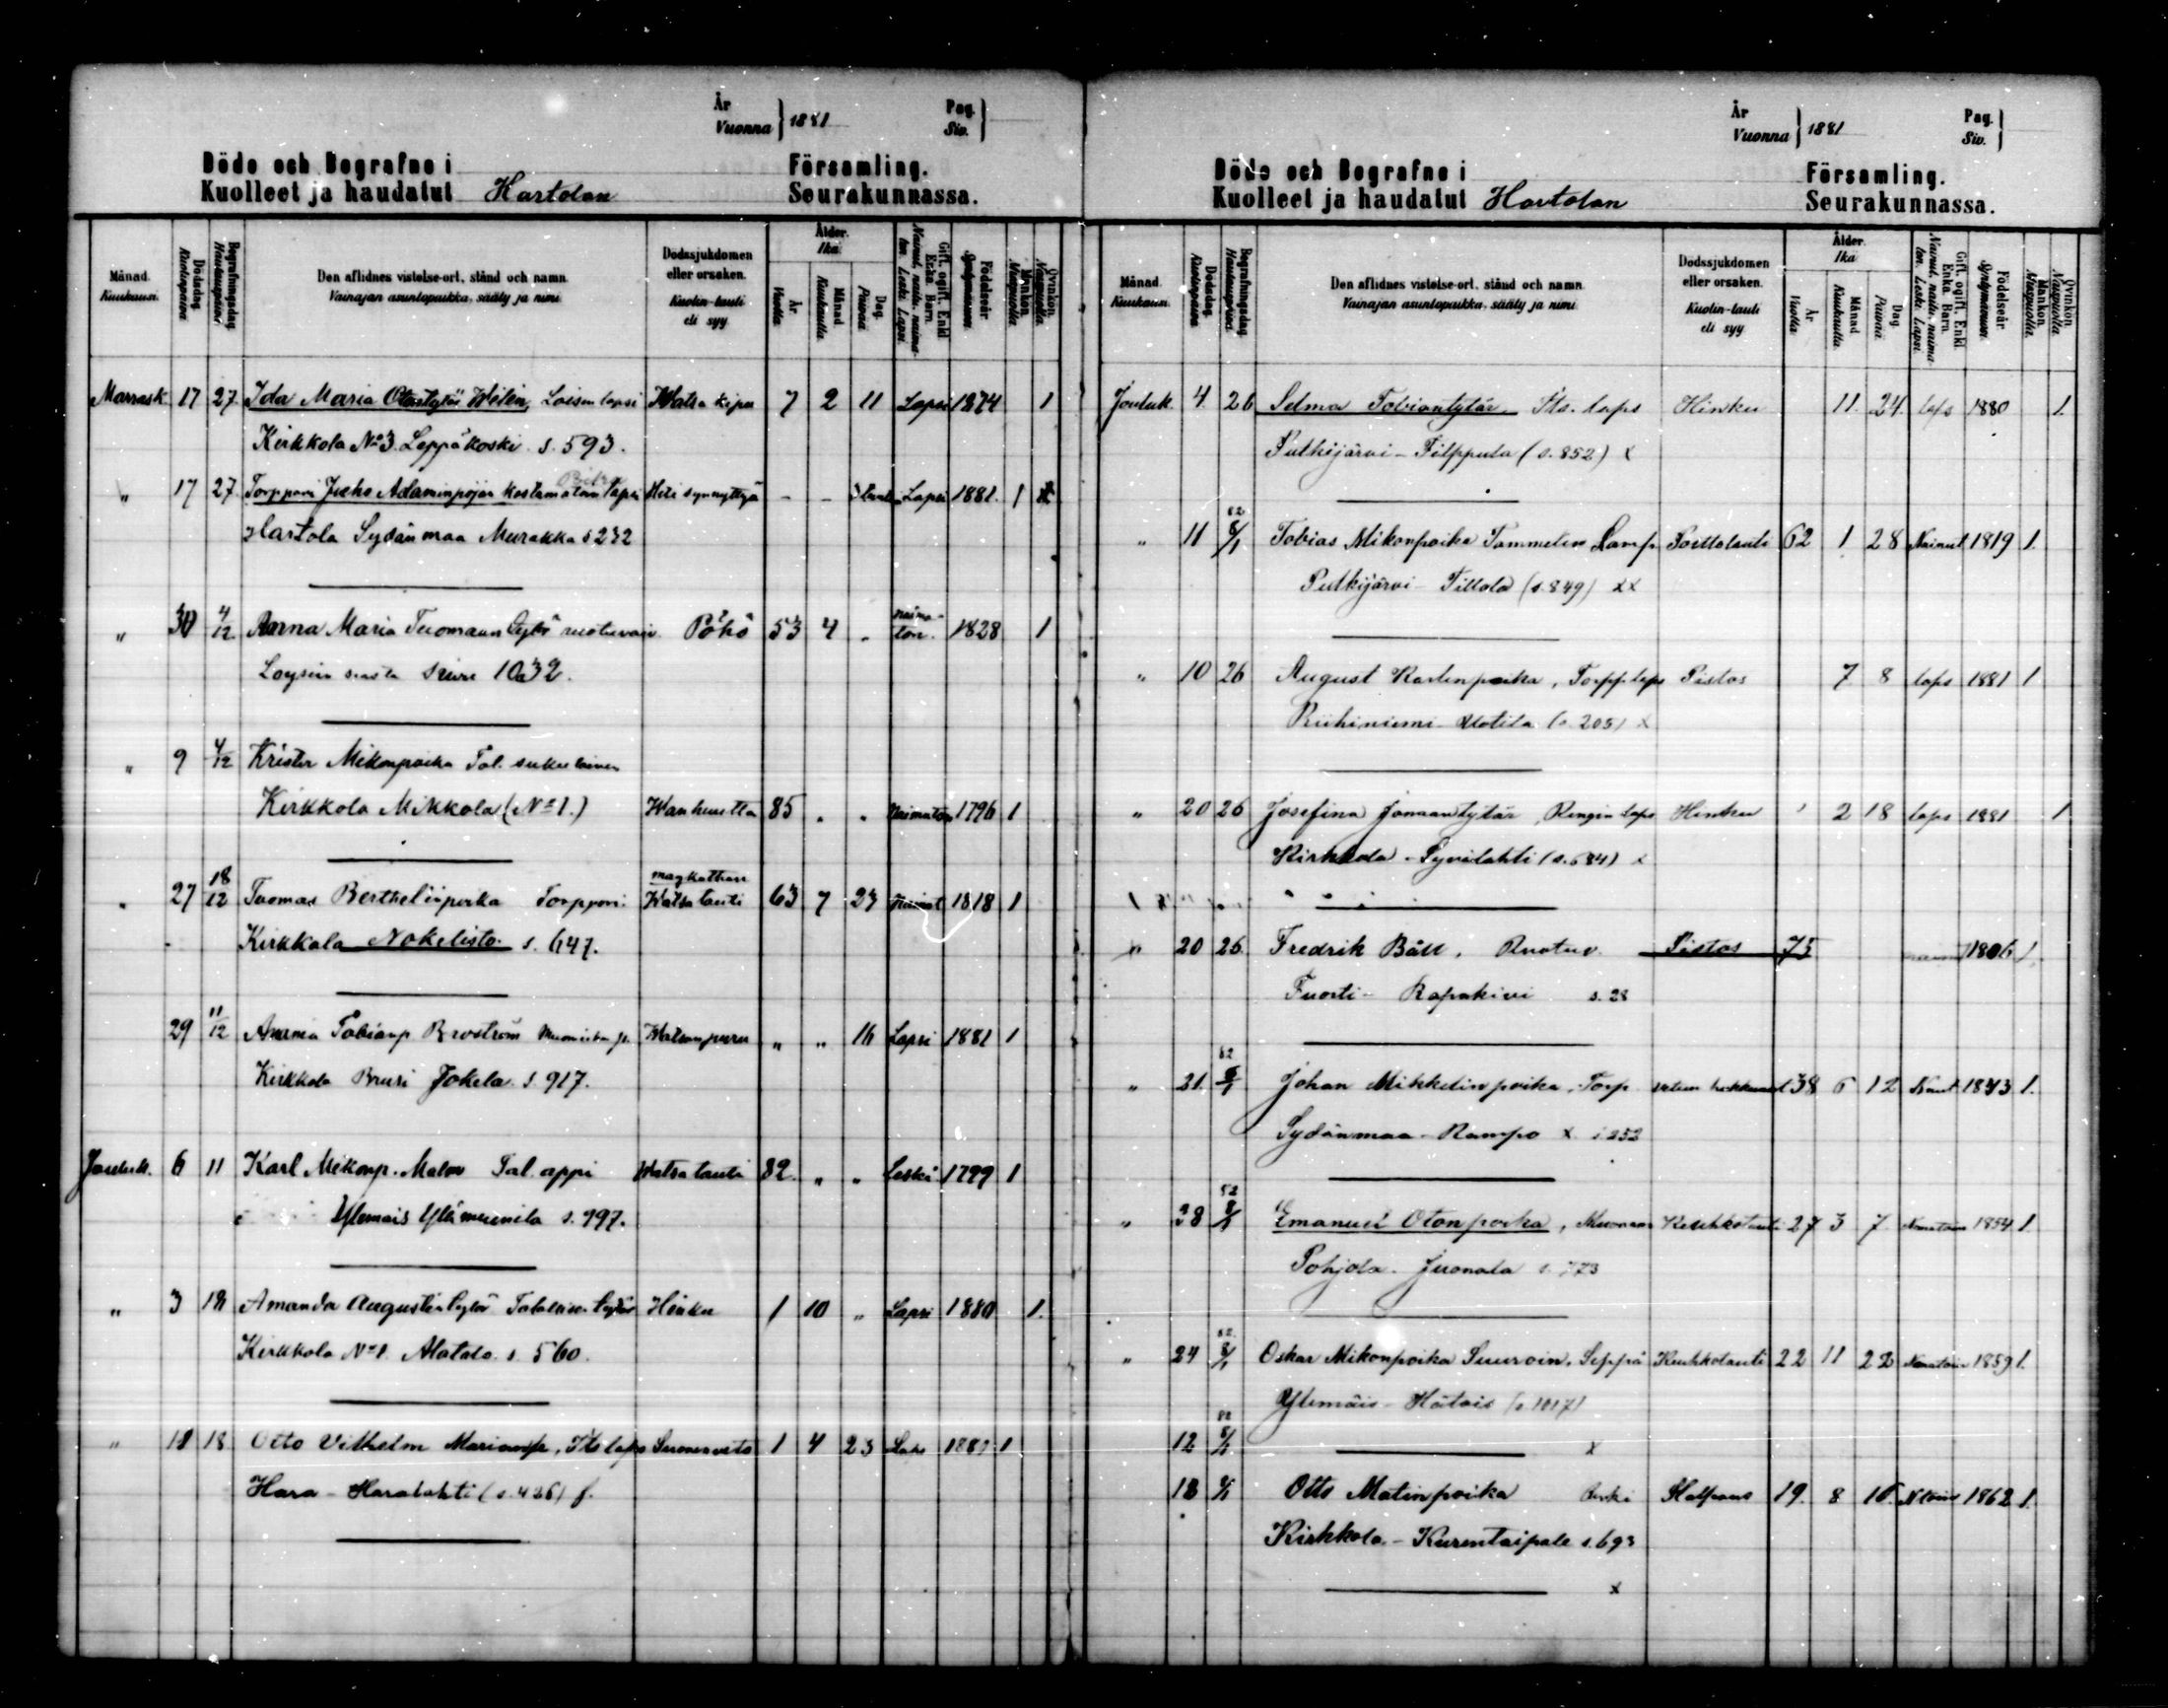 År
Vuonna } 1881
Pag.
Siv. }
Döde och Begrafne i
Kuolleet ja haudatut Hartolan
Församling.
Seurakunnassa.
Månad. Kuukausi.
Dödsdag. Kuolinpäivä.
Begrafningsdag. Hautauspäivä.
Den aflidnes vistelse-ort, stånd och namn.
Vainajan asuntopaikka, sääty ja nimi.
Dödssjukdomen eller orsaken.
Kuolin-tauti eli syy.
Ålder. Ikä.
År. Vuotta.
Månad. Kuukautta.
Dag. Päivää.
Gift, ogift, Enkl. Enka. Barn.
Nainut, naitu, naimaton. Leski. Lapsi.
Födelseår. Syntymävuosi.
Mankön. Miespuolia.
Qvinkön. Naispuolia.
Marrask. 17 27 Ida Maria Welin, Loisen lapsi Watsa kipu 7 2 11 Lapsi 1874 1
Kirkkola No 3 Leppäkoski s. 593.
" 17 27 Torppari Juho Adaminpojan lapsi Heti synnyttyä - - Lapsi 1881. 1
Hartola Sydänmaa Murakka s 232
" 30 4/12 Anna Maria Tuomaan tytär Pöhö 53 4 " naimaton. 1828 1
1032.
" 9 4/12 Krister Mikonpoika Tal. sukulainen
Kirkkola Mikkola (No 1.) Wanhuutta 85 " " Naimaton 1796 1
" 27 18/12 Tuomas Berthelinpoika Torppari Watsatauti 63 7 23 Nainut 1818 1
Kirkkola Nokelisto s. 647.
29 11/12 Tobianp " " 16 Lapsi 1881 1
Kirkkola Jokela s. 917.
Jouluk. 6 11 Karl Mikonp. Malm Tal. appi Watsa tauti 82. " " Leski 1799 1
Ylemäis s. 997.
" 3 18 Amanda Augustin tytär Hinku 1 10 " Lapsi 1880 1.
Kirkkola No 1 Alatalo s. 560.
" 11 18 Otto Vilhelm Marianp, Its laps 1 4 23 Laps 1
Hara - Haralahti (s. 426) f.
År
Vuonna } 1881
Pag.
Siv. }
Döde och Begrafne i
Kuolleet ja haudatut Hartolan
Församling.
Seurakunnassa.
Månad. Kuukausi.
Dödsdag. Kuolinpäivä.
Begrafningsdag. Hautauspäivä.
Den aflidnes vistelse-ort, stånd och namn.
Vainajan asuntopaikka, sääty ja nimi.
Dödssjukdomen eller orsaken.
Kuolin-tauti eli syy.
Ålder. Ikä.
År. Vuotta.
Månad. Kuukautta.
Dag. Päivää.
Gift, ogift, Enkl. Enka. Barn.
Nainut, naitu, naimaton. Leski. Lapsi.
Födelseår. Syntymävuosi.
Mankön. Miespuolia.
Qvinkön. Naispuolia.
Jouluk. 4. 26 Selma Tobiantytär. Its. laps Hinku 11. 24. laps 1880 1.
Putkijärvi - Filppula (s. 852) x
" 11 8/1 82 Tobias Mikonpoika Tammelin Lamp Polttotauti 62 1 28 Nainut 1819 1.
Putkijärvi - Tillola (s. 849) xx
" 10 26 August Karlenpoika, Torpp laps Pistos 7 8 laps 1881 1
Riihiniemi - Uotila (s. 205) x
" 20 26 Josefina Jonaantytär, Rengin laps Hinku 2 18 laps 1881 1
Kirkkola - Syvälahti (s. 684) x
" 20 26. Fredrik Båll. Ruotuv. Pistos 75 1806 1
Tuosti - Rapakivi s. 28
" 21. 8/1 82 Johan Mikkelinpoika, Torp 38 6 12 Nainut 1843 1.
Sydänmaa - Rampo x s 252
" 28 8/1 Emanuel Otonpoika, Keuhkotauti 27 3 7 1854 1.
Pohjola. Juonala s. 773
" 24 8/1 82. Oskar Mikonpoika Suuroin. Seppä Keuhkotauti 22 11 22 1859 1.
Ylemäis - Hotois (s. 1017)
12 8/1 82 x
18 8/1 Otto Matinpoika Renki Halfvaus 19. 8 16. 1862 1.
Kirkkola - Kurentaipale s. 693
x